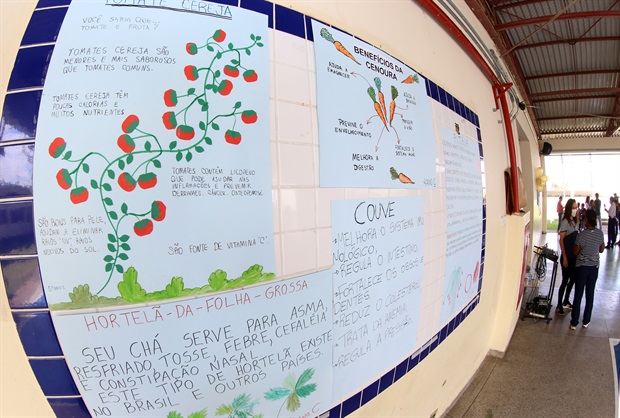 TOMATE CEREJA
VOCÊ SABIA QUE
TOMATE É FRUTA?
TOMATES CEREJA SÃO
MENORES E MAIS SABOROSOS
QUE TOMATES COMUNS.
TOMATES CEREJA TÊM
POUCAS CALORIAS E
MUITOS NUTRIENTES
TOMATES CONTÉM LICOPENO
QUE PODE AJUDAR NAS
INFLAMAÇÕES E PREVEM E
DERRAMES, CÂNCER, OSTEOPOROSE.
SÃO BONS PARA PELE,
AJUDAM A ELIMINAR
RAIOS "UV", RAIOS
NOCIVOS DO SOL
SÃO FONTE DE VITAMINA "C".
BENEFÍCIOS DA
CENOURA
AJUDA A
EMAGRECER
PREVINE O
ENVELHECIMENTO
FORTALECE O
SISTEMA
MELHORA A
DIGESTÃO
COUVE
-MELHORA O SISTEMA
NOLÓGICO;
-REGULA O INTESTINO
-FORTALECE OS OSSOS E
DENTES.
-REDUZ O COLESTEROL
-TRATA DA ANEMIA
-REGULA A PRESSÃO
HORTELÃ-DA-FOLHA-GROSSA
SEU CHÁ SERVE PARA ASMA,
RESFRIADO, TOSSE, FEBRE, CEFALÉIA
E CONSTIPAÇÃO NASAL.
ESTE TIPO DE HORTELÃ EXISTE
NO BRASIL E OUTROS PAÍSES.